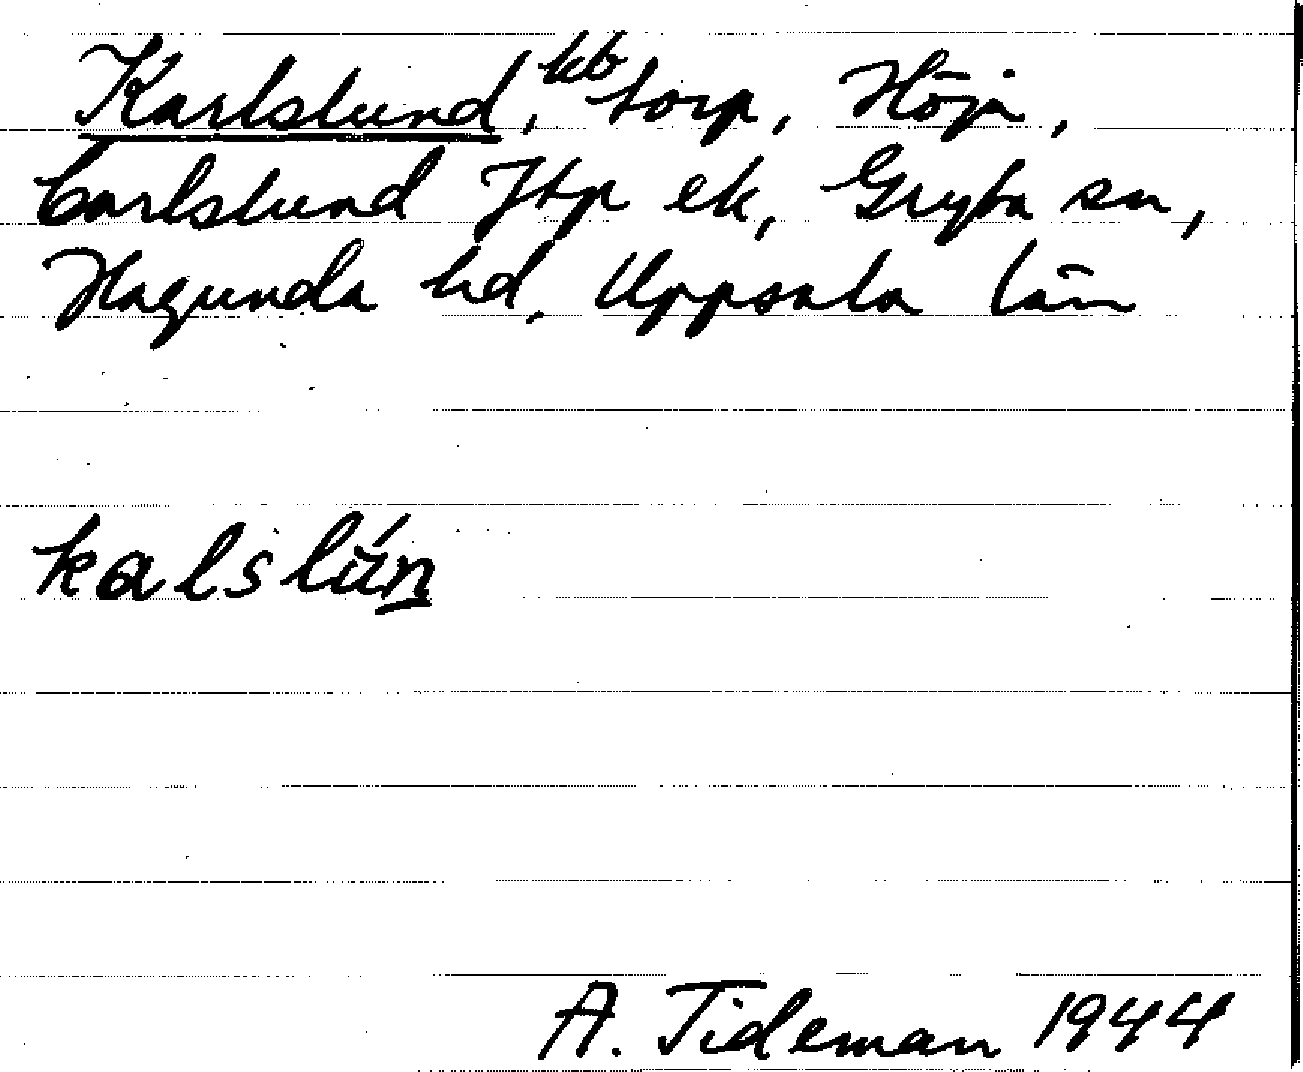 Karlslund, kb torp, Höja,
Carlslund Jtp ek, Gryta sn,
Hagunda hd, Uppsala län
kalslún
A. Tideman 1944